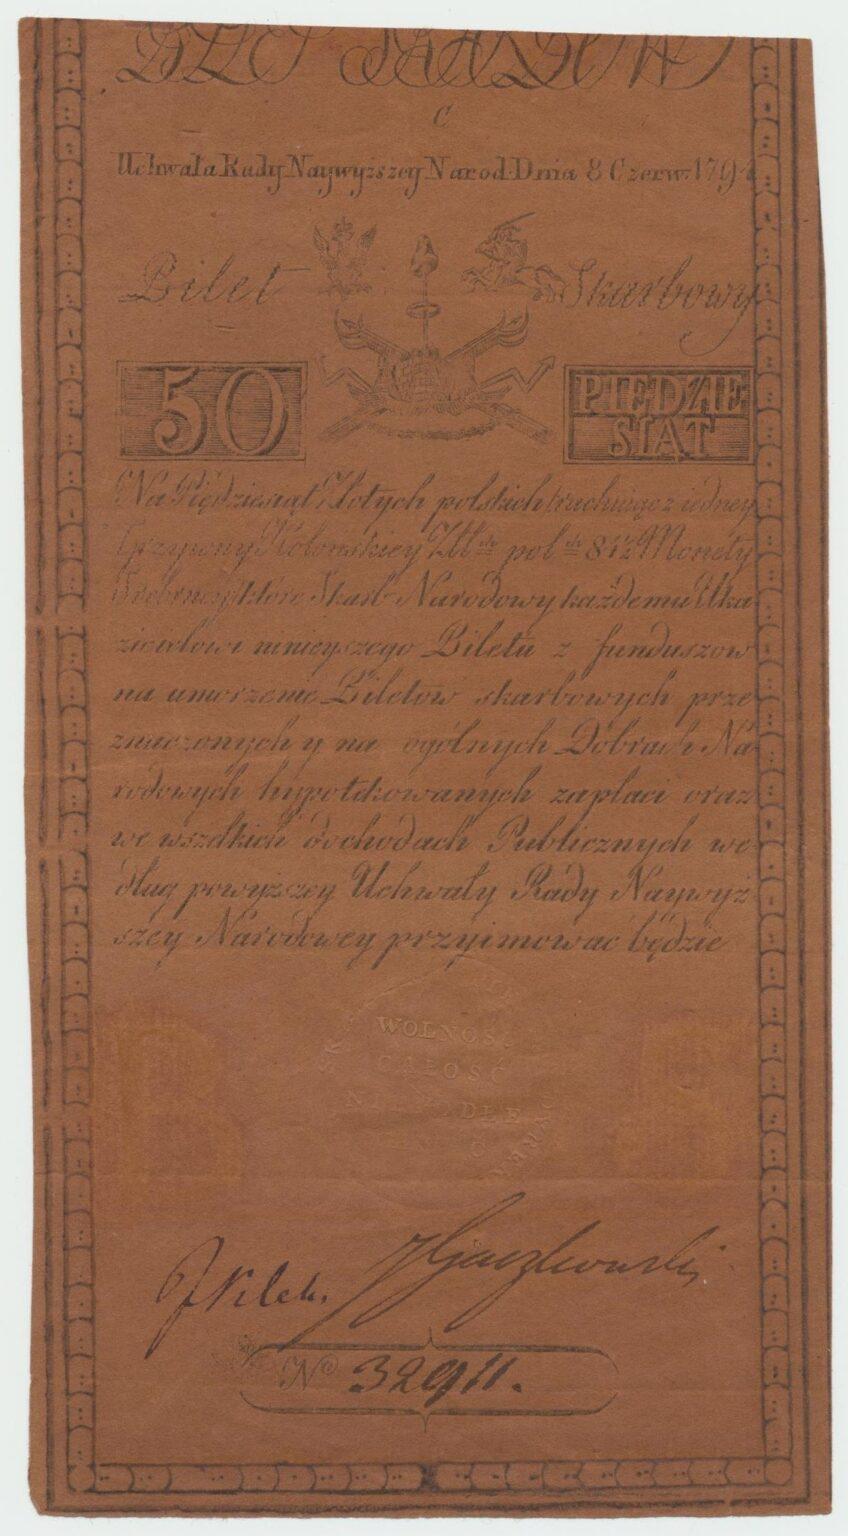 C
Uchwała Rady Naywyższey Narod: Dnia 8 Czerw: 1794
Bilet Skarbowy
50 PIEDZIE
SIĄT
Na Piędziesiąt Złotych polskich rachuiąc z iedney
Grzywny Kolonskiey Zł pol 84 1/2 Monety
Srebrney które Skarb Narodowy każdemu Uka
zicielowi ninieyszego Biletu z funduszow
na umorzenie Biletow skarbowych prze
znaczonych y na ogólnych Dobrach Na
rodowych hypotekowanych zapłaci oraz
we wszelkich dochodach Publicznych we
dług powyższey Uchwały Rady Naywyż
szey Narodowey przyimować będzie
WOLNOŚĆ
CAŁOŚĆ
NIEPODLE
No 32911.